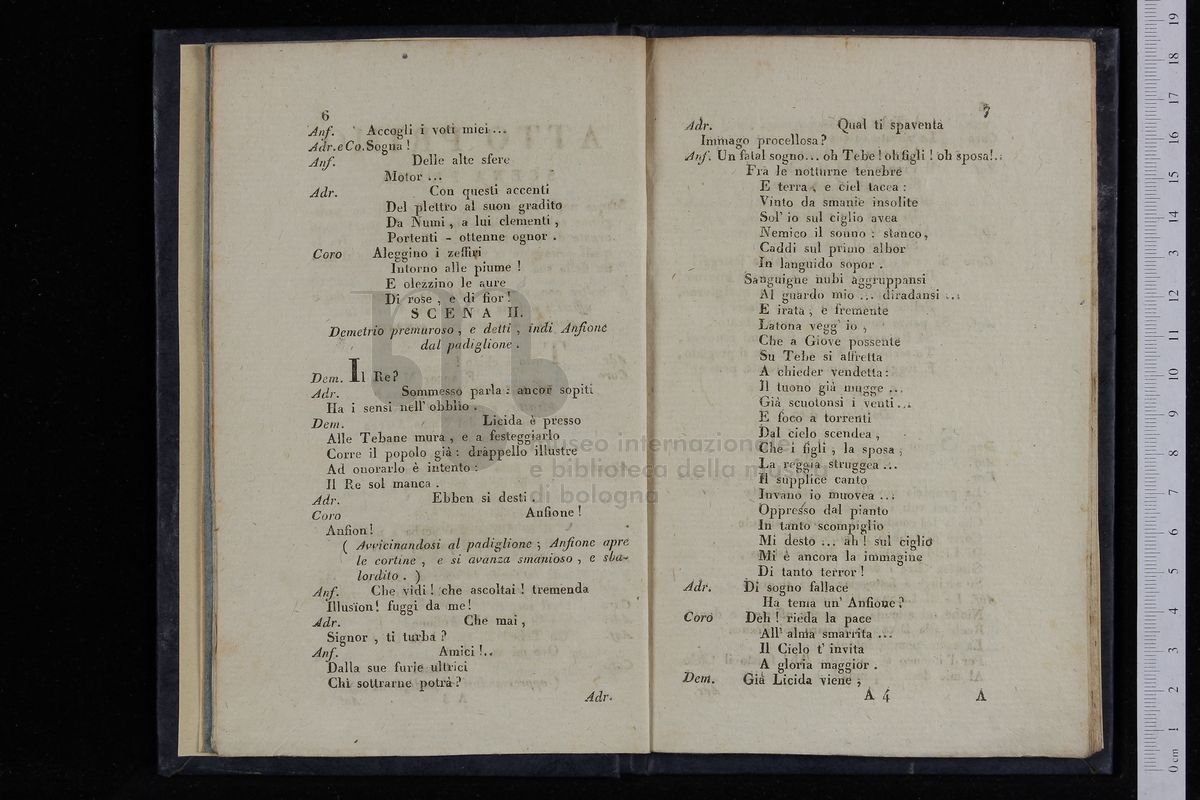 6
Anf. Accogli i voti miei...
Adr. e Co. Sogna!
Anf. Delle alte sfere
Motor ...
Adr. Con questi accenti
Del plettro al suon gradito
Da Numi, a lui clementi,
Portenti - ottenne ognor.
Coro Aleggino i zeffiri
Intorno alle piume!
E olezzino le aure
Di rose, e di fior!
SCENA II.
Demetrio premuroso, e detti, indi Anfione
dal padiglione.
Dem. Il Re?
Adr. Sommesso parla: ancor sopiti
Ha i sensi nell' obblio.
Dem. Licida è presso
Alle Tebane mura, e a festeggiarlo
Corre il popolo già: drappello illustre
Ad onorarlo è intento:
Il Re sol manca.
Adr. Ebben si desti.
Coro Anfione!
Anfion!
( Avvicinandosi al padiglione; Anfione apre
le cortine, e si avanza smanioso, e sba-
lordito. )
Anf. Che vidi! che ascoltai! tremenda
Illusïon! fuggi da me!
Adr. Che mai,
Signor, ti turba?
Anf. Amici!..
Dalla sue furie ultrici
Chi sottrarne potrà?
Adr.
7
Adr. Qual ti spaventa
Immago procellosa?
Anf. Un fatal sogno... oh Tebe! oh figli! oh sposa!..
Fra le notturne tenebre
E terra, e ciel tacea:
Vinto da smanie insolite
Sol' io sul ciglio avea
Nemico il sonno: stanco,
Caddi sul primo albor
In languido sopor.
Sanguigne nubi aggruppansi
Al guardo mio ... diradansi ...
E irata, e fremente
Latona vegg' io,
Che a Giove possente
Su Tebe si affretta
A chieder vendetta:
Il tuono già mugge ...
Già scuotonsi i venti...
E foco a torrenti
Dal cielo scendea,
Che i figli, la sposa,
La reggia struggea ...
Il supplice canto
Invano io muovea ...
Oppresso dal pianto
In tanto scompiglio
Mi desto ... ah! sul ciglio
Mi è ancora la immagine
Di tanto terror!
Adr. Di sogno fallace
Ha tema un' Anfione?
Coro Deh! rieda la pace
All' alma smarrita ...
Il Cielo t' invita
A gloria maggior.
Dem. Già Licida viene;
A 4 A
museo internazionale
e biblioteca della musica
di bologna
0 cm 1 2 3 4 5 6 7 8 9 10 11 12 13 14 15 16 17 18 19